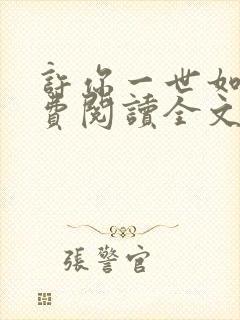 許你一世如
費閱讀全文
張警官